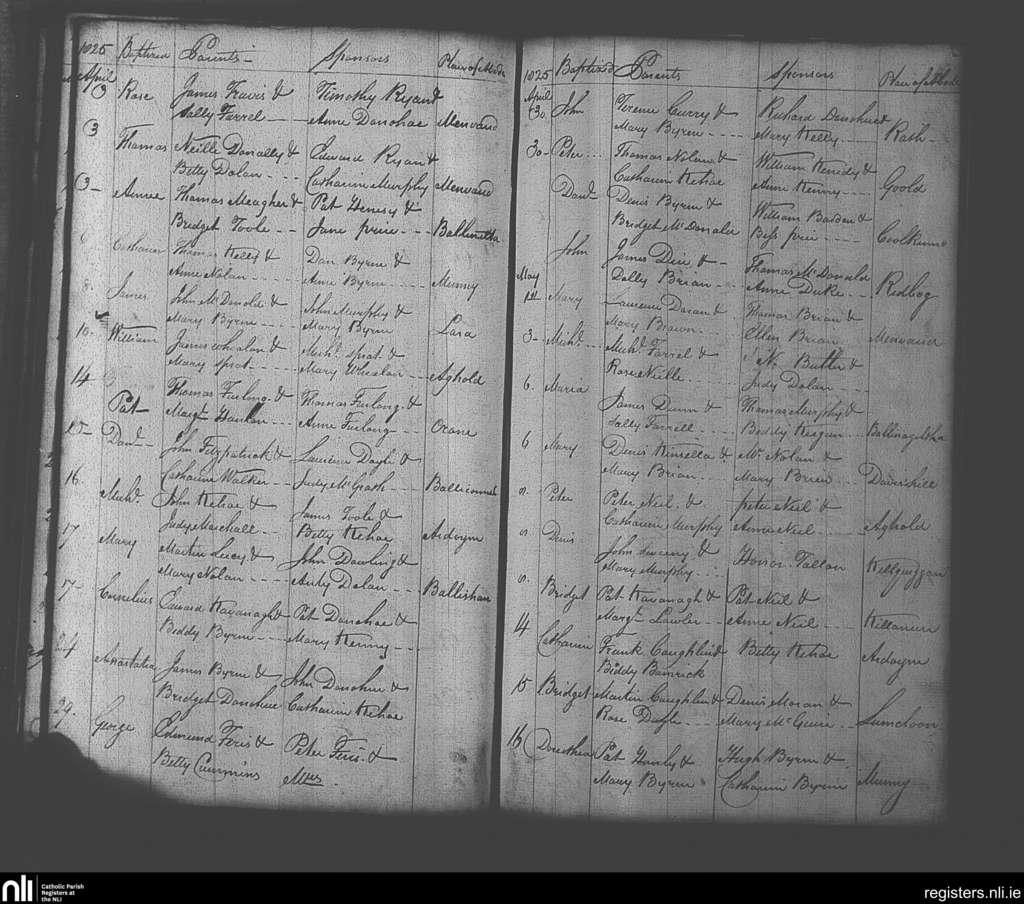 1825 Baptized Parents Sponsors Place of Abode
April
3 Rose James Travis & Timothy Ryan &
Sally Farrel Anne Donohoe Menvaud
3 Thomas Neille Donally & Edward Ryan &
Betty Dolan Catharine Murphy Menvaud
3 Annee Thomas Meagher & Pat Henesy &
Bridget Toole Jane
6 Catharine Thomas Kelly & Dan Byrne &
Anne Nolan Anne Byrne Munny
8 James John McDonold & John Murphy &
Mary Byrne Mary Byrne Lara
10 William James Whealan & Michl. Sprat &
Mary Sprat Mary Whealan Aghold
14 Pat Thomas Furlong & Thomas Furlong &
Margt. Hanlon Anne Furlong Orane
15 Danl. John Fitzpatrick & Laurence Doyle &
Catharine Walker Judy McGrath
16 Michl. John Kehoe & James Toole &
Judy Marshall Betty Kehoe Ardoyne
17 Mary Martin Lucy & John Dowling &
Mary Nolan Andy Dolan Ballishan
17 Cornelius Edward Kavanagh & Pat Donohoe &
Biddy Byrne Mary Kenny
24 Anastatia James Byrne & John Donohue &
Bridget Donohue Catharine Kehoe
29 George Edmund Feris & Peter Feris &
Betty Cummins Mrs
1825 Baptized Parents Sponsors Place of Abode
April
30 John Terence Curry & Richard Donohue &
Mary Byrne Mary Kelly Rath
30 Peter Thomas Nolan & William Kenedy &
Catharine Kehoe Anne Kenny Goold
Danl. Denis Byrne & William Barden &
Bridget McDonald Bess
John James Duie & Thomas McDonald
Dolly Brian Anne Duke Redbog
May
1st Mary Laurence Doran & Thomas Brian &
Mary Brown Ellen Brian Menvaud
3 Michl. Michl. Farrel & N. Butler &
Rose Neille Judy Dolan
6 Maria James Dunn & Thomas Murphy &
Sally Farrell Biddy Keegan
6 Mary Denis Kinsella & Mr Nolan &
Mary Brian Mary Brien
8 Peter Peter Neil & Peter Neil &
Catharine Murphy Anne Neil Aghold
8 Denis John Sweeny & Honor Fallon
Mary Murphy
8 Bridget Pat Kavanagh & Pat Neil &
Margt. Lawler Anne Neil
14 Catharine Frank Coughlin & Betty Kehoe Ardoyne
Biddy Banrick
15 Bridget Martin Coughlin & Denis Moran &
Rose Doyle Mary McGuire Lumcloon
16 Dorothea Pat Hanly & Hugh Byrne &
Mary Byrne Catharine Byrne Munny
nli Catholic Parish
Registers at
the NLI
registers.nli.ie